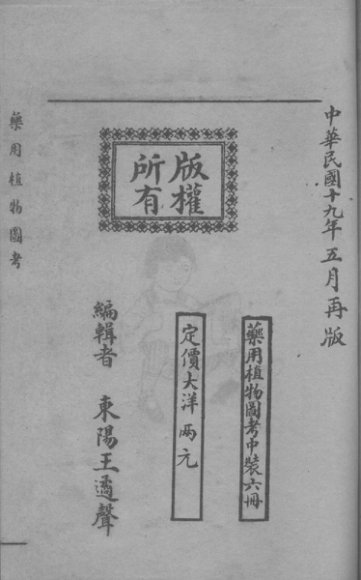 中華民國十九年五月再版
版權所有
藥用植物圖考中裝六冊
定價大洋兩元
編輯者 東陽王遹聲
藥用植物圖考